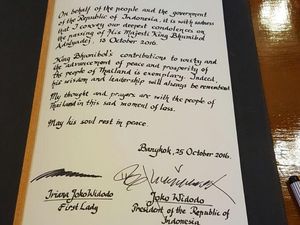 On behalf of the people and the government
of the Republic of Indonesia, it is with sadness
that I convey our deepest condolences on
the passing of His Majesty King Bhumibol
Adulyadej, 13 October 2016.
King Bhumibol's contributions to society and
the advancement of peace and prosperity of
the people of Thailand is exemplary. Indeed,
his wisdom and leadership will always be remembered
My thought and prayers are with the people of
Thailand in this sad moment of loss.
May his soul rest in peace
Bangkok, 25 October 2016.
Iriana Joko Widodo
First Lady
Joko Widodo
President of the Republic of
Indonesia